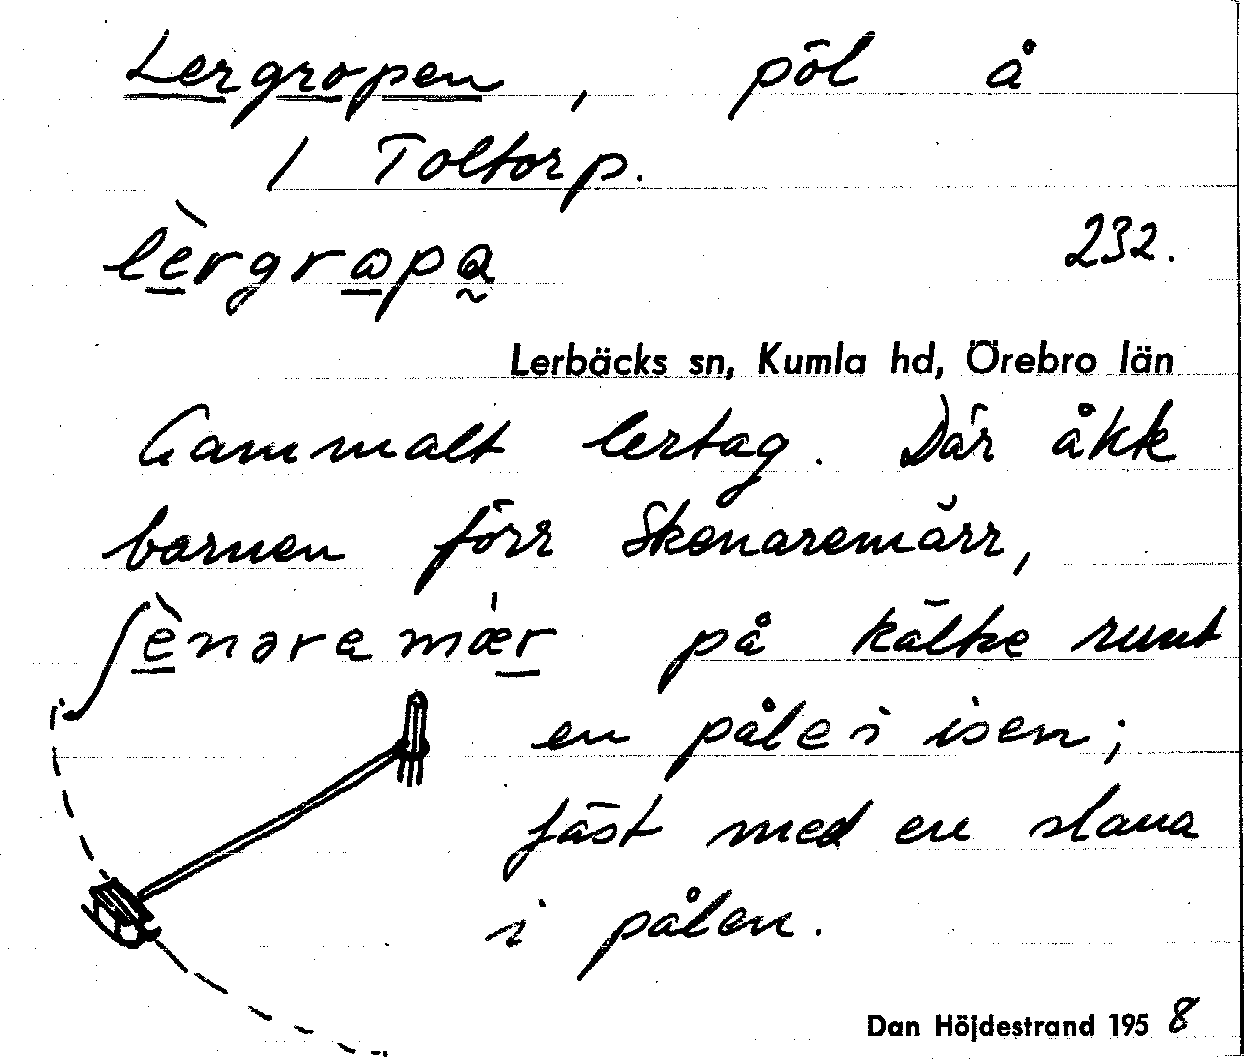 Lergropen, pöl å
1 Toltorp.
lèrgrapa
232.
Lerbäcks sn, Kumla hd, Örebro län
Gammalt lertag. Där åkk
barnen förr Skenaremärr,
ʃènəramær på kälke runt
en påle i isen;
fäst med en slana
i pålen.
Dan Höjdestrand 1958